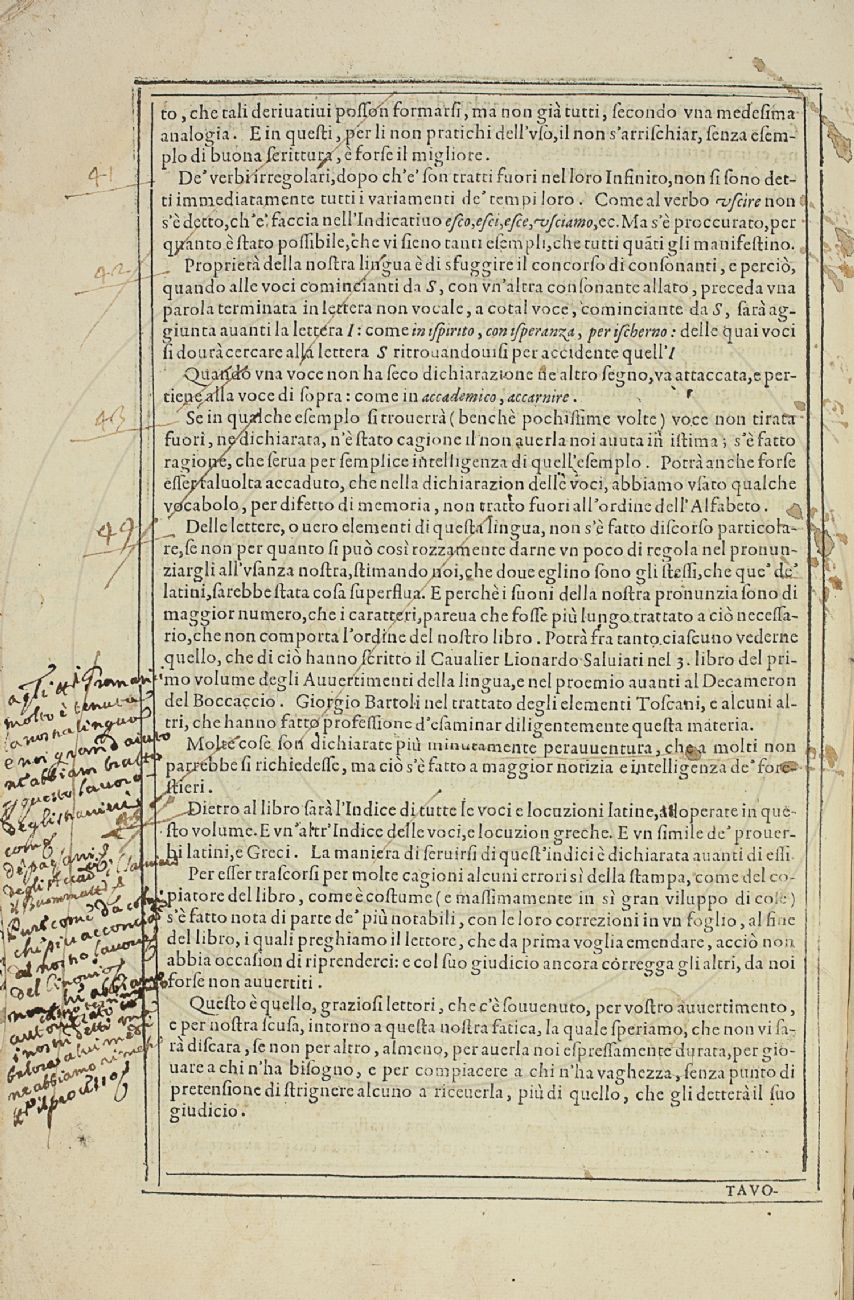 to, che tali deriuatiui posson formarsi, ma non già tutti, secondo vna medesima
analogia. E in questi, per li non pratichi dell'vso, il non s'arrischiar, senza esem-
plo di buona scrittura, è forse il migliore.
41
De' verbi irregolari, dopo ch'e' son tratti fuori nel loro Infinito, non si sono det-
ti immediatamente tutti i variamenti de' tempi loro. Come al verbo vscire non
s'è detto, ch'e' faccia nell'Indicatiuo esco, esci, esce, vsciamo, ec. Ma s'è proccurato, per
quanto è stato possibile, che vi sieno tanti esempli, che tutti quāti gli manifestino.
42
Proprietà della nostra lingua è di sfuggire il concorso di consonanti, e perciò,
quando alle voci comincianti da S, con vn'altra consonante allato, preceda vna
parola terminata in lettera non vocale, a cotal voce, cominciante da S, sarà ag-
giunta auanti la lettera I: come in ispirito, con isperanza, per ischerno: delle quai voci
si dourà cercare alla lettera S ritrouandouisi per accidente quell'I
Quando vna voce non ha seco dichiarazione ne altro segno, va attaccata, e per-
tiene alla voce di sopra: come in accademico, accarnire.
43
Se in qualche esemplo si trouerrà (benchè pochissime volte) voce non tirata
fuori, ne dichiarata, n'è stato cagione il non auerla noi auuta in istima; s'è fatto
ragione, che serua per semplice intelligenza di quell'esemplo. Potrà anche forse
esser taluolta accaduto, che nella dichiarazion delle voci, abbiamo vsato qualche
vocabolo, per difetto di memoria, non tratto fuori all'ordine dell'Alfabeto.
Delle lettere, o uero elementi di questa lingua, non s'è fatto discorso particola-
re, se non per quanto si può così rozzamente darne vn poco di regola nel pronun-
ziargli all'vsanza nostra, stimando noi, che doue eglino sono gli stessi, che que' de'
latini, sarebbe stata cosa superflua. E perchè i suoni della nostra pronunzia sono di
maggior numero, che i caratteri, pareua che fosse più lungo trattato a ciò necessa-
rio, che non comporta l'ordine del nostro libro. Potrà fra tanto ciascuno vederne
quello, che di ciò hanno scritto il Caualier Lionardo Saluiati nel 3. libro del pri-
mo volume degli Auuertimenti della lingua, e nel proemio auanti al Decameron
del Boccaccio. Giorgio Bartoli nel trattato degli elementi Toscani, e alcuni al-
tri, che hanno fatto professione d'esaminar diligentemente questa materia.
Molte cose son dichiarate più minutamente perauuentura, che a molti non
parrebbe si richiedesse, ma ciò s'è fatto a maggior notizia e intelligenza de' fore-
stieri.
Dietro al libro sarà l'Indice di tutte le voci e locuzioni latine, adoperate in que-
sto volume. E vn'altr' Indice delle voci, e locuzion greche. E vn simile de' prouer-
bi latini, e Greci. La maniera di seruirsi di quest'indici è dichiarata auanti di essi.
Per esser trascorsi per molte cagioni alcuni errori sì della stampa, come del co-
piatore del libro, come è costume (e massimamente in sì gran viluppo di cose)
s'è fatto nota di parte de' più notabili, con le loro correzioni in vn foglio, al fine
del libro, i quali preghiamo il lettore, che da prima voglia emendare, acciò non
abbia occasion di riprenderci: e col suo giudicio ancora corregga gli altri, da noi
forse non auuertiti.
Questo è quello, graziosi lettori, che c'è souuenuto, per vostro auuertimento,
e per nostra scusa, intorno a questa nostra fatica, la quale speriamo, che non vi sa-
rà discara, se non per altro, almeno, per auerla noi espressamente durata, per gio-
uare a chi n'ha bisogno, e per compiacere a chi n'ha vaghezza, senza punto di
pretensione di strignere alcuno a riceuerla, più di quello, che gli detterà il suo
giudicio.
TAVO-
molto è tenuta
la nostra lingua